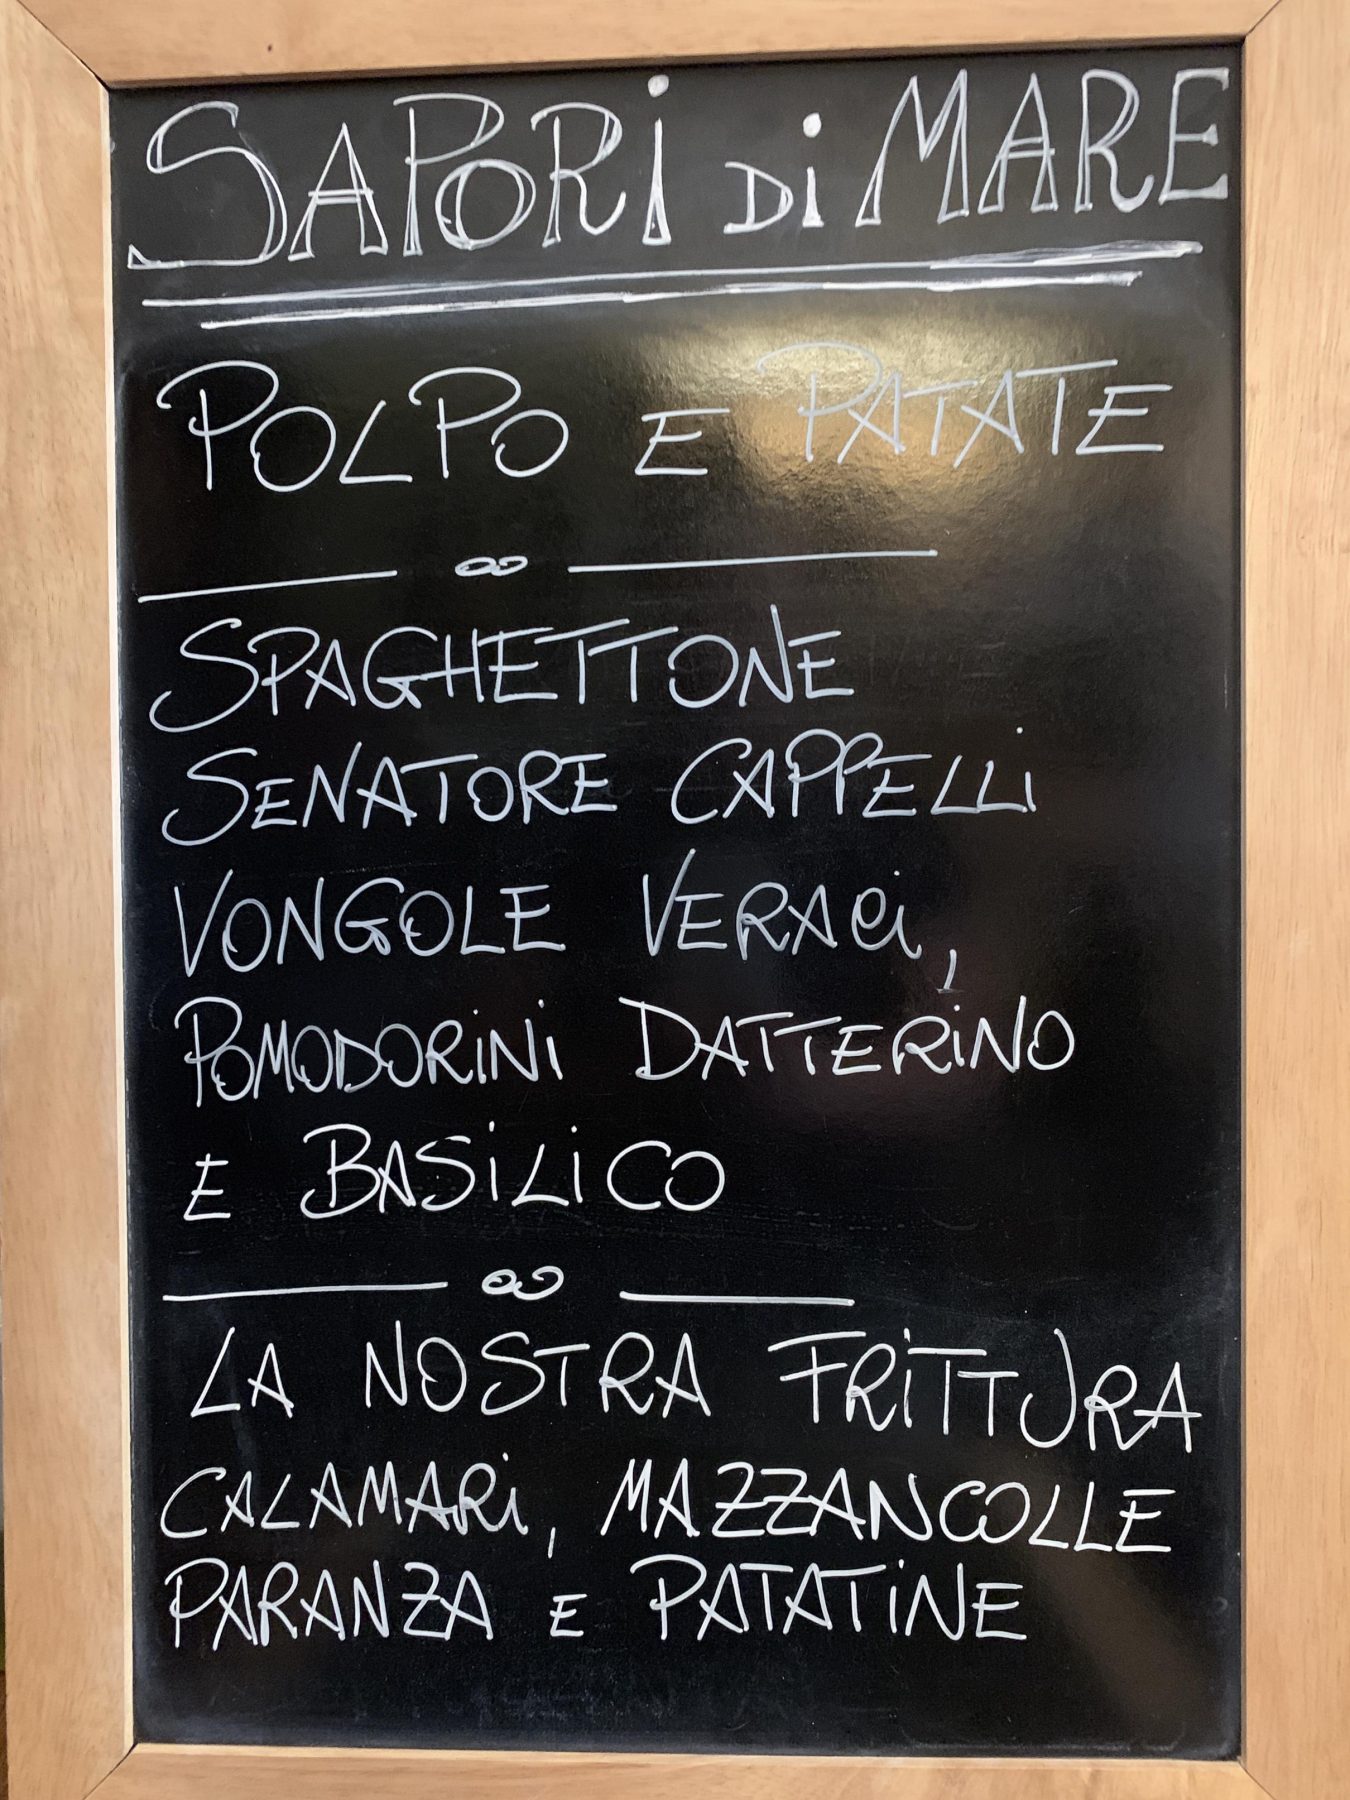 SAPORi Di MARE
POLPO E PATATE
SPAGHETTONE
SENATORE CAPPELLi
VONGOLE VERACi,
POMODORiNi DATTERiNO
E BASiLiCO
LA NOSTRA FRiTTURA
CALAMARi, MAZZANCOLLE
PARANZA E PATATiNE